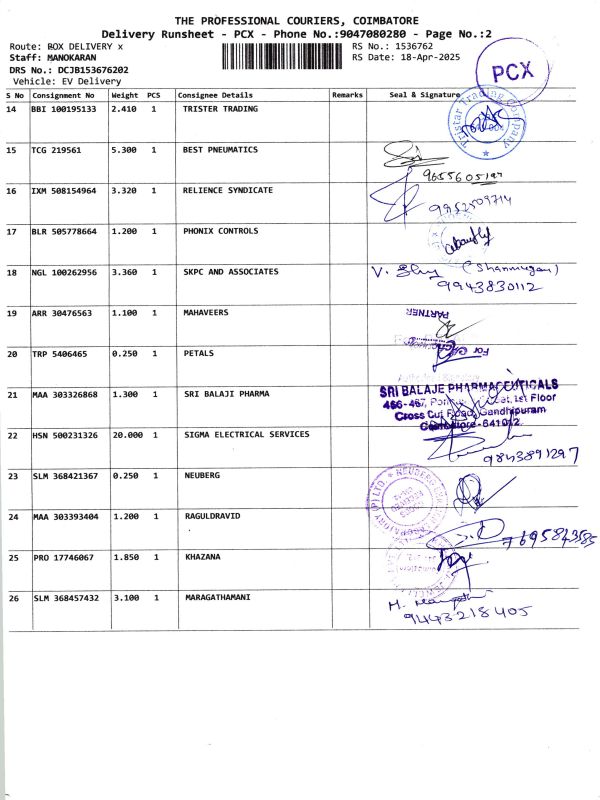 THE PROFESSIONAL COURIERS, COIMBATORE
Delivery Runsheet - PCX - Phone No.:9047080280 - Page No.:2
Route: BOX DELIVERY x RS No.: 1536762
Staff: MANOKARAN RS Date: 18-Apr-2025
DRS No.: DCJB153676202
Vehicle: EV Delivery
PCX
S No Consignment No Weight PCS Consignee Details Remarks Seal & Signature
14 BBI 100195133 2.410 1 TRISTER TRADING
Tristar Trading Company
15 TCG 219561 5.300 1 BEST PNEUMATICS
9655605197
16 IXM 508154964 3.320 1 RELIENCE SYNDICATE
9952509714
17 BLR 505778664 1.200 1 PHONIX CONTROLS
18 NGL 100262956 3.360 1 SKPC AND ASSOCIATES V. (Shanmugam)
9943830112
19 ARR 30476563 1.100 1 MAHAVEERS
PARTNER
20 TRP 5406465 0.250 1 PETALS
For
21 MAA 303326868 1.300 1 SRI BALAJI PHARMA
SRI BALAJE PHARMACEUTICALS
466-467, 1st Floor
Cross Cut Road, Gandhipuram
Coimbatore-641012
22 HSN 500231326 20.000 1 SIGMA ELECTRICAL SERVICES
9843891297
23 SLM 368421367 0.250 1 NEUBERG
NEUBERG
24 MAA 303393404 1.200 1 RAGULDRAVID
7695843585
25 PRO 17746067 1.850 1 KHAZANA
26 SLM 368457432 3.100 1 MARAGATHAMANI
9443218405